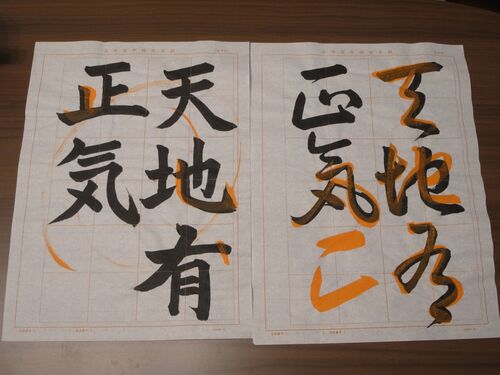 天地有
正気
天地有
正気